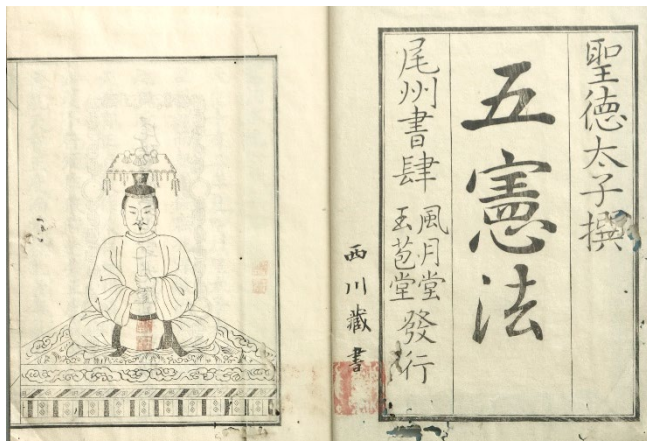 聖徳太子撰
五憲法
尾州書肆 風月堂 玉芭堂 發行
西川藏書